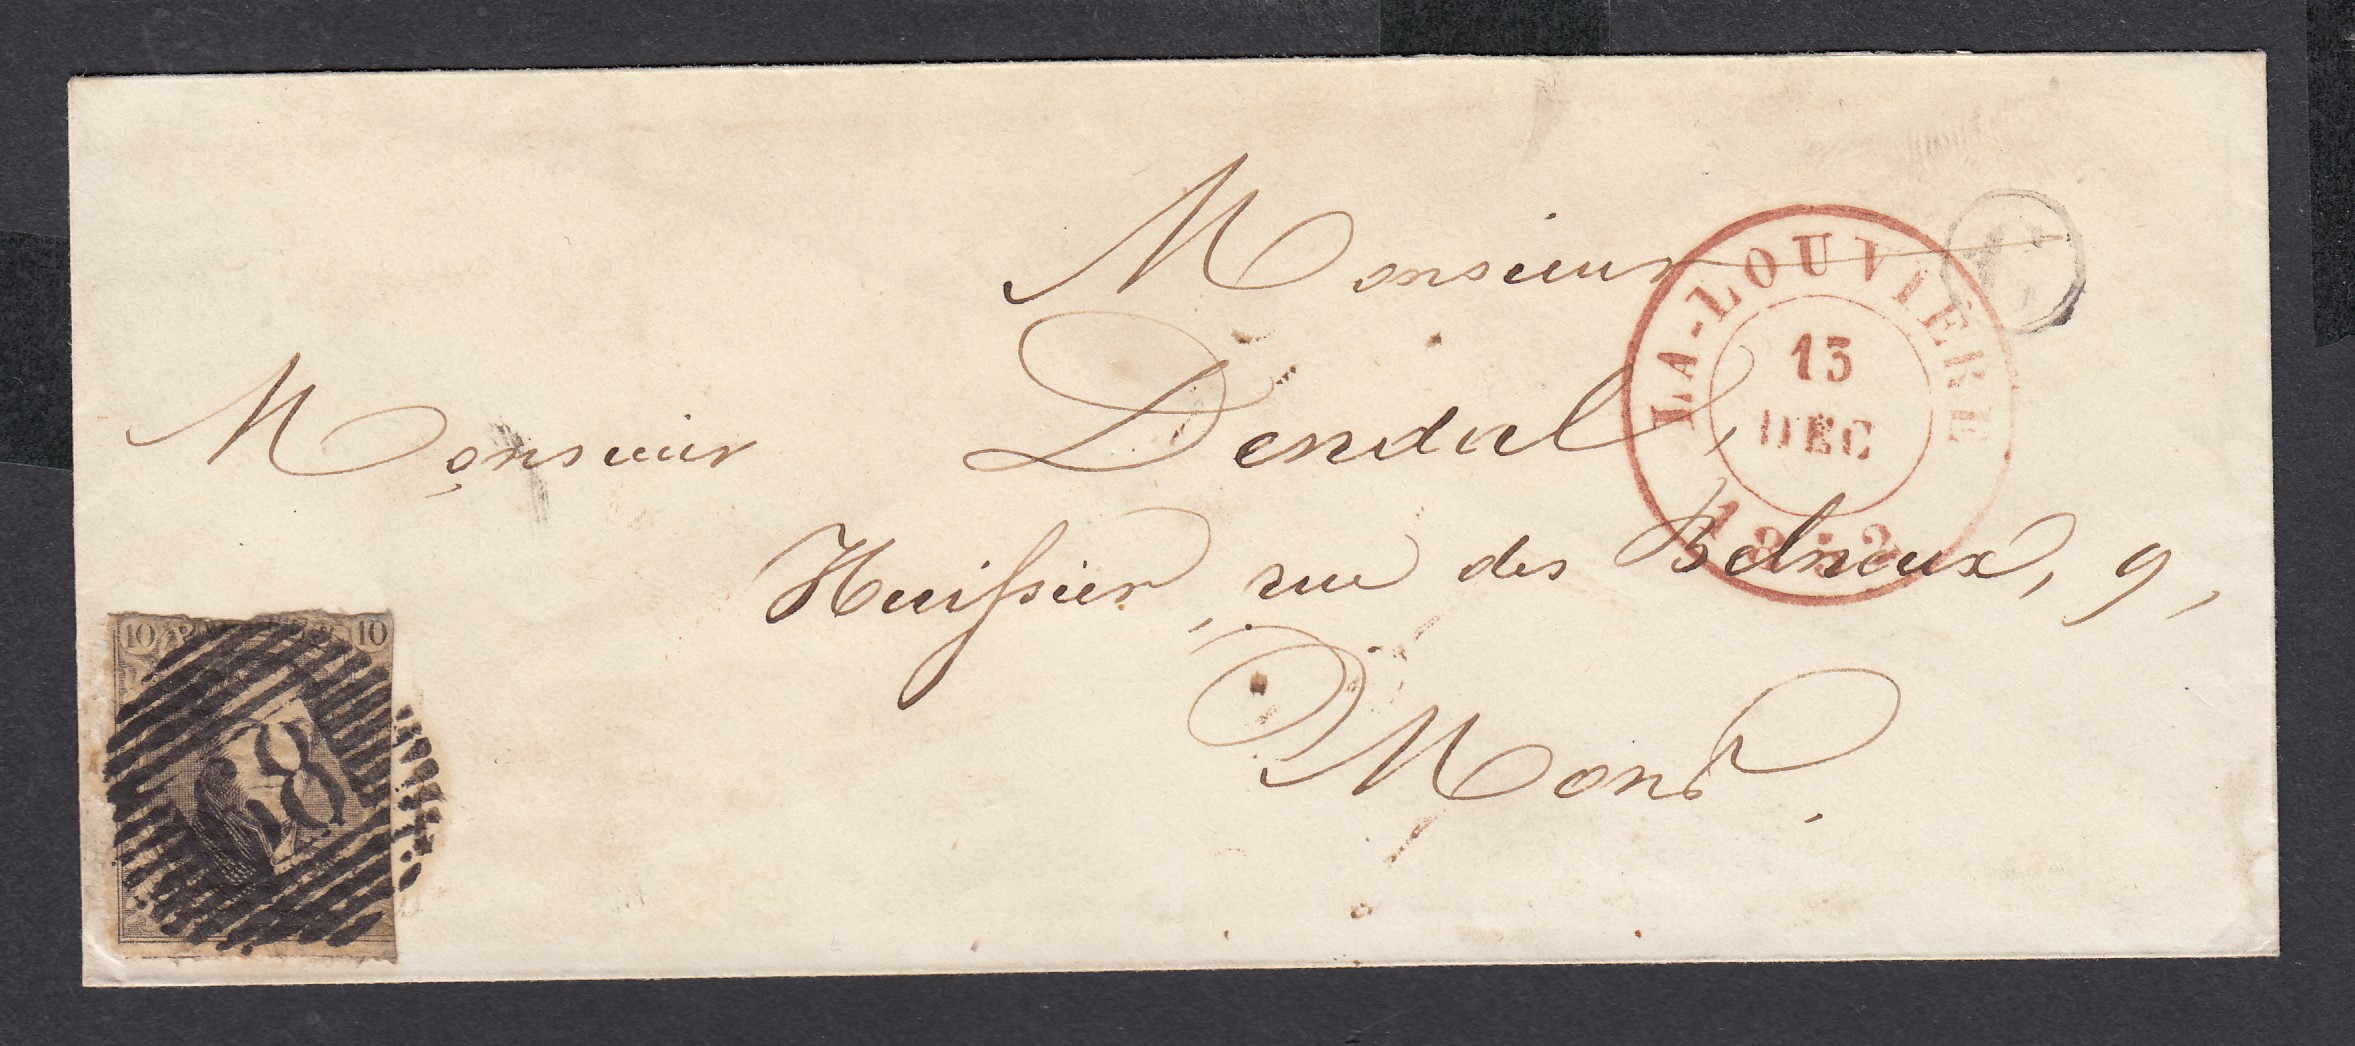 Monsieur
Monsieur Dendal,
Huissier, rue des Belneux, 9,
Mons.
LA-LOUVIERE
13
DEC
1852
10 10
68